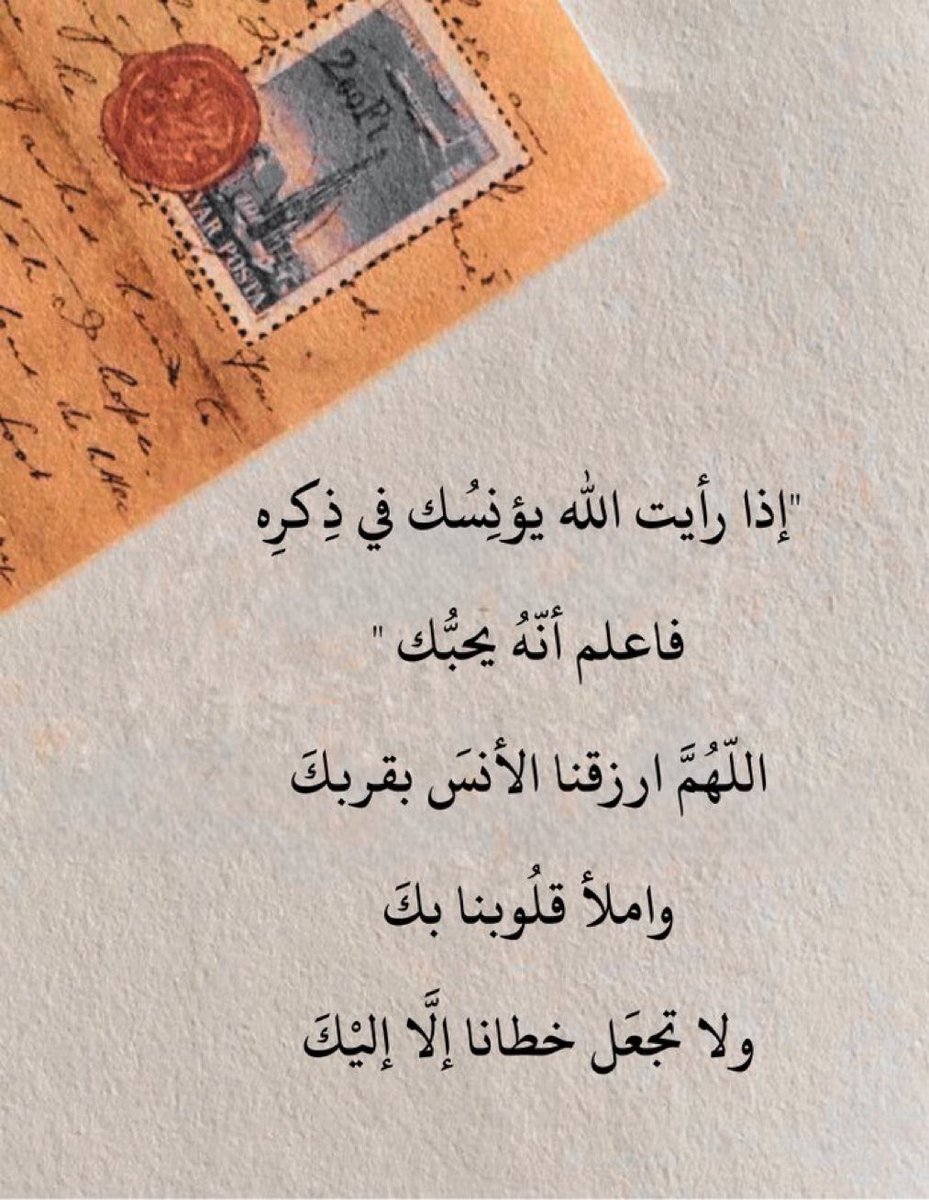 200Ft
YAR POSTA
you
hope.
"إذا رأيت الله يؤنِسُك في ذِكرِه
فاعلم أنّهُ يحبُّك "
اللّهُمَّ ارزقنا الأنسَ بقربكَ
واملأ قلُوبنا بكَ
ولا تجعَل خطانا إلَّا إليْكَ